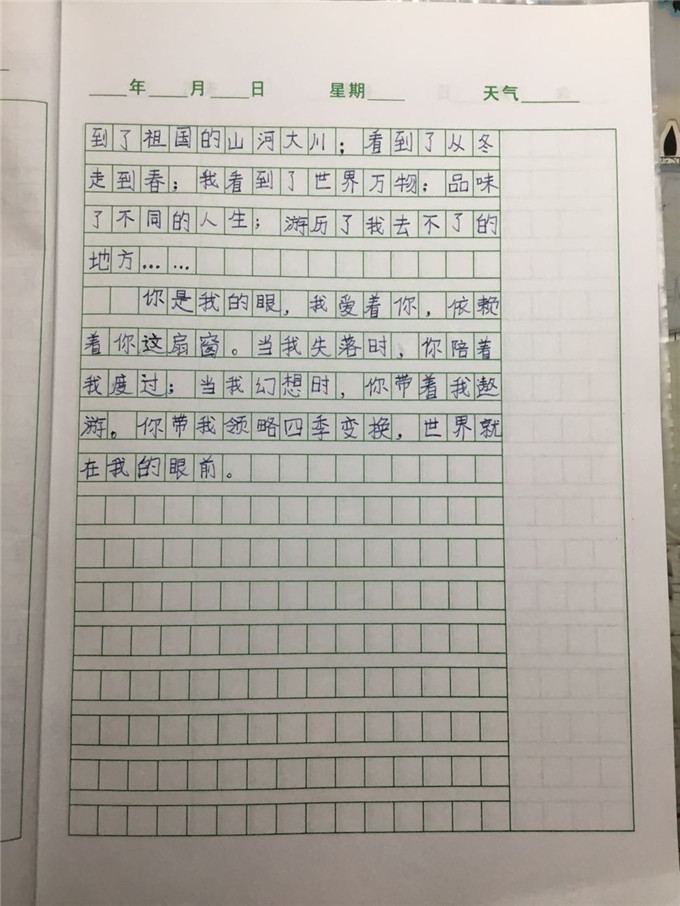 ____年____月____日 星期____ 天气______
到了祖国的山河大川；看到了从冬
走到春；我看到了世界万物；品味
了不同的人生；游历了我去不了的
地方……
你是我的眼，我爱着你，依赖
着你这扇窗。当我失落时，你陪着
我度过；当我幻想时，你带着我遨
游。你带我领略四季变换，世界就
在我的眼前。